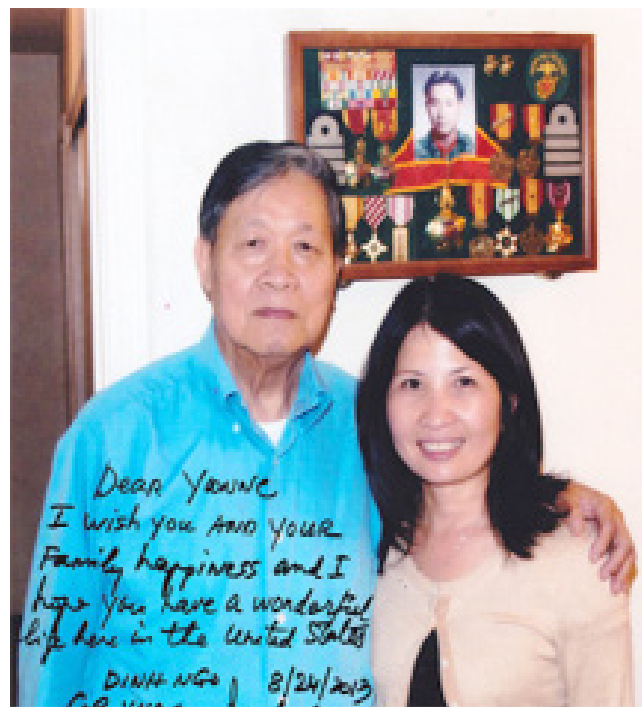 Dear Yvonne
I wish you AND YOUR
Family happiness and I
hope you have a wonderful
life here in the United States
DINH NGO 8/24/2013